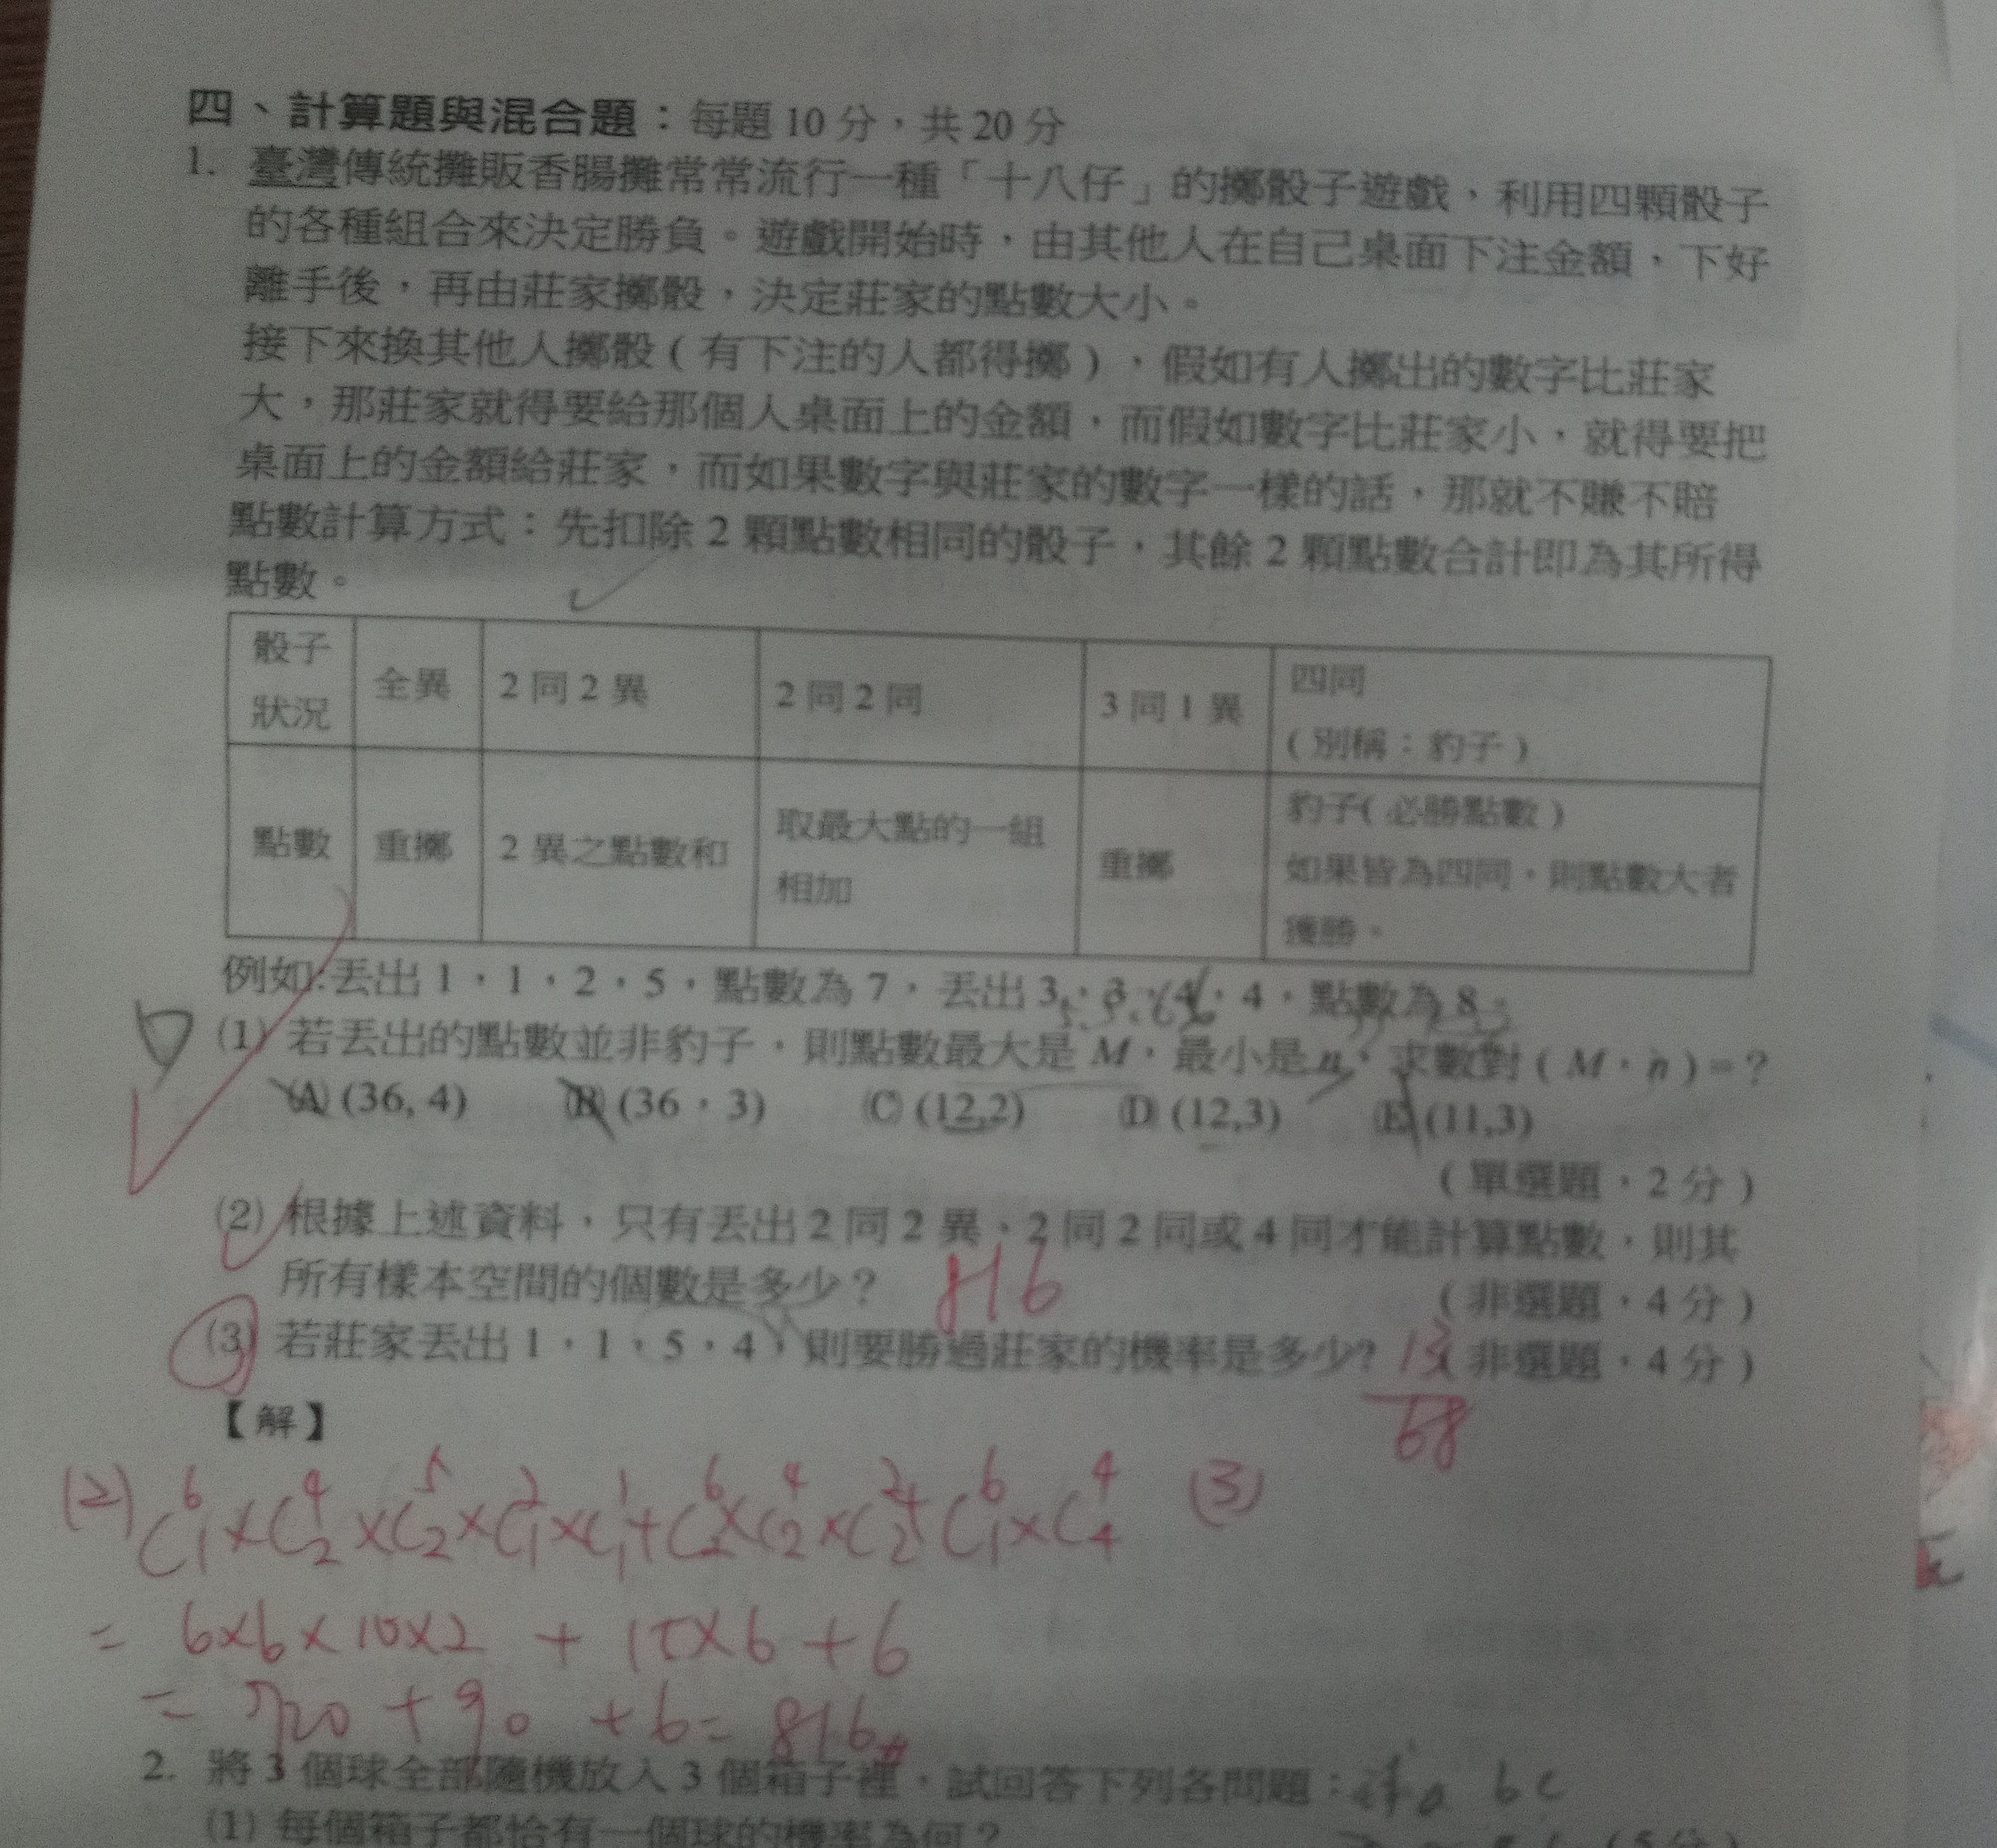 四、計算題與混合題：每題 10 分，共 20 分
1. 臺灣傳統攤販香腸攤常常流行一種「十八仔」的擲骰子遊戲，利用四顆骰子
的各種組合來決定勝負。遊戲開始時，由其他人在自己桌面下注金額，下好
離手後，再由莊家擲骰，決定莊家的點數大小。
接下來換其他人擲骰（有下注的人都得擲），假如有人擲出的數字比莊家
大，那莊家就得要給那個人桌面上的金額，而假如數字比莊家小，就得要把
桌面上的金額給莊家，而如果數字與莊家的數字一樣的話，那就不賺不賠
點數計算方式：先扣除 2 顆點數相同的骰子，其餘 2 顆點數合計即為其所得
點數。
骰子狀況 全異 2 同 2 異 2 同 2 同 3 同 1 異 四同（別稱：豹子）
點數 重擲 2 異之點數和 取最大點的一組相加 重擲 豹子（必勝點數）如果皆為四同，則點數大者獲勝。
例如:丟出 1，1，2，5，點數為 7，丟出 3，3，4，4，點數為 8。
(1) 若丟出的點數並非豹子，則點數最大是 M，最小是 n，求數對（M，n）=？
(A) (36, 4) (B) (36，3) (C) (12,2) (D) (12,3) (E) (11,3)
（單選題，2 分）
(2) 根據上述資料，只有丟出 2 同 2 異、2 同 2 同或 4 同才能計算點數，則其
所有樣本空間的個數是多少？ 816 （非選題，4 分）
(3) 若莊家丟出 1，1，5，4，則要勝過莊家的機率是多少? 13/68 （非選題，4 分）
【解】
(2) C⁶₁×C⁴₂×C⁵₂×C²₁×C¹₁+C⁶₂×C⁴₂×C²₂+C⁶₁×C⁴₄ (3)
= 6×6×10×2 + 15×6+6
= 720 + 90 + 6 = 816#
2. 將 3 個球全部隨機放入 3 個箱子裡，試回答下列各問題：
(1) 每個箱子都恰有一個球的機率為何？ （5 分）